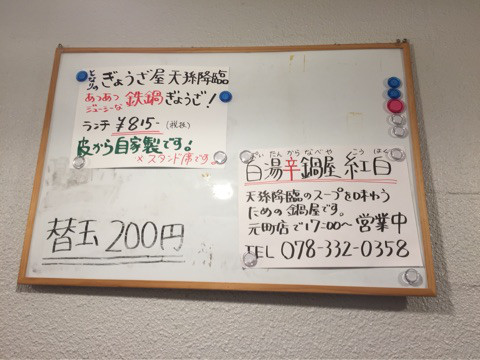 となりの ぎょうざ屋 天孫降臨
あつあつ ジューシーな 鉄鍋ぎょうざ！
ランチ ¥815- (税抜)
皮から自家製です。
×スタンド席です。
替玉 200円
ぱいたんからなべや こうはく
白湯辛鍋屋 紅白
天孫降臨のスープを味わう
ための鍋屋です。
元町店で17:00〜営業中
TEL 078-332-0358